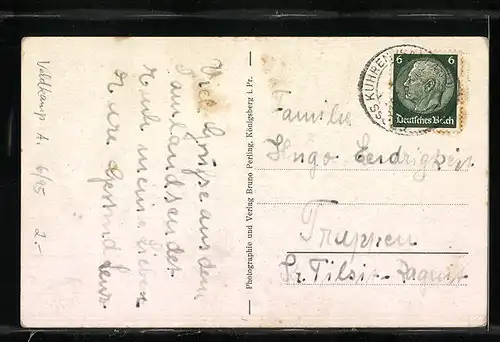 Valdkamp A. 6/95 2.-
Viele Grüße aus dem
sendet
Euch meine Lieben
Eure
Photographie und Verlag Bruno Perling, Königsberg i. Pr.
KUHREN
6 6
Deutsches Reich
Familie
Hugo
Trappen
Kr. Tilsit-Ragnit